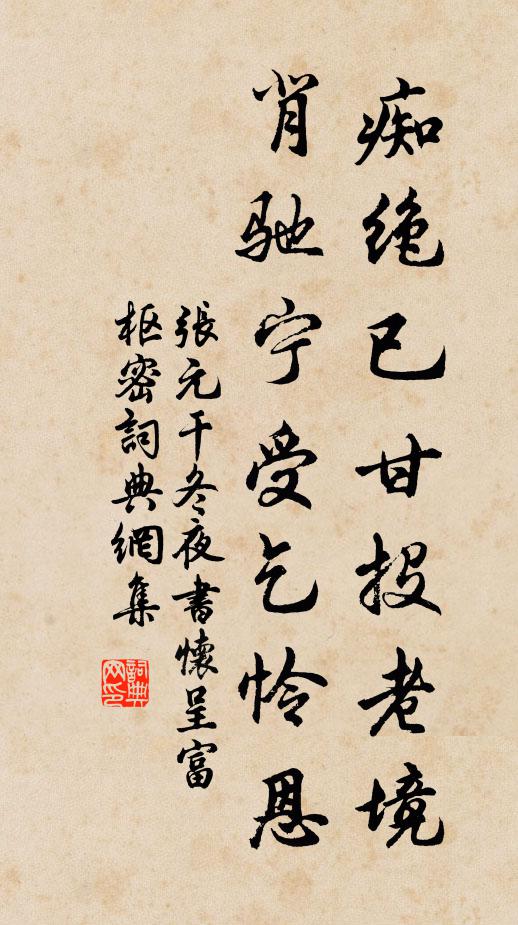 痴绝已甘投老境
肖驰宁受乞怜恩
張元干冬夜書懷呈富
枢密詞典網集
詞典
网印